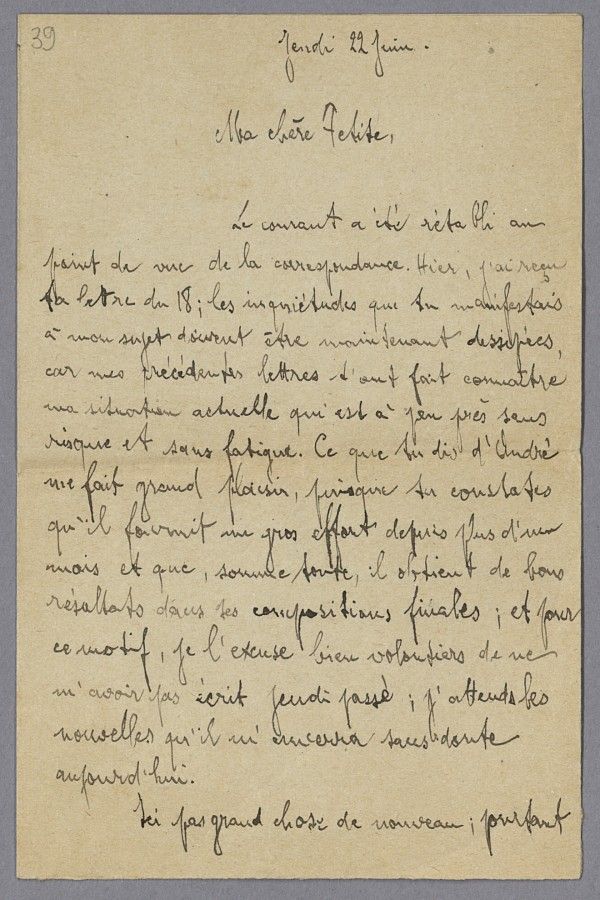 39
Jeudi 22 Juin.
Ma chère Petite,
Le courant a été rétabli au
point de vue de la correspondance. Hier, j'ai reçu
ta lettre du 18; les inquiétudes que tu manifestais
à mon sujet doivent être maintenant dissipées,
car mes précédentes lettres t'ont fait connaître
ma situation actuelle qui est à peu près sans
risque et sans fatigue. Ce que tu dis d'André
me fait grand plaisir, puisque tu constates
qu'il fournit un gros effort depuis plus d'un
mois et que, somme toute, il obtient de bons
résultats dans ses compositions finales; et pour
ce motif, je l'excuse bien volontiers de ne
m'avoir pas écrit jeudi passé; j'attends les
nouvelles qu'il m'enverra sans doute
aujourd'hui.
Ici pas grand chose de nouveau; pourtant